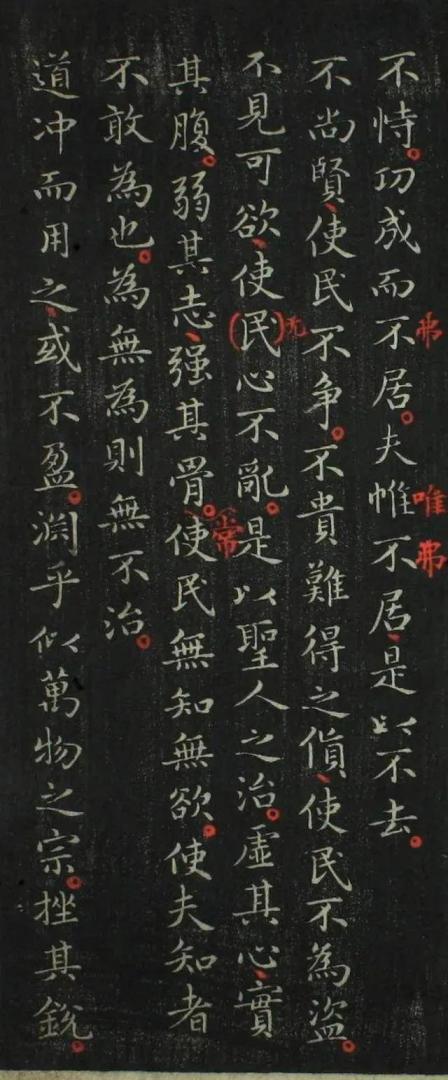 不恃。功成而不居。夫惟不居、是以不去。
弗
唯
弗
不尚賢、使民不争。不貴難得之貨、使民不為盜。
不見可欲、使(民)心不亂。是以聖人之治。虛其心、實
无
其腹。弱其志、强其骨。使民無知無欲。使夫知者
常
不敢為也。為無為則無不治。
道冲而用之、或不盈。淵乎似萬物之宗。挫其銳。